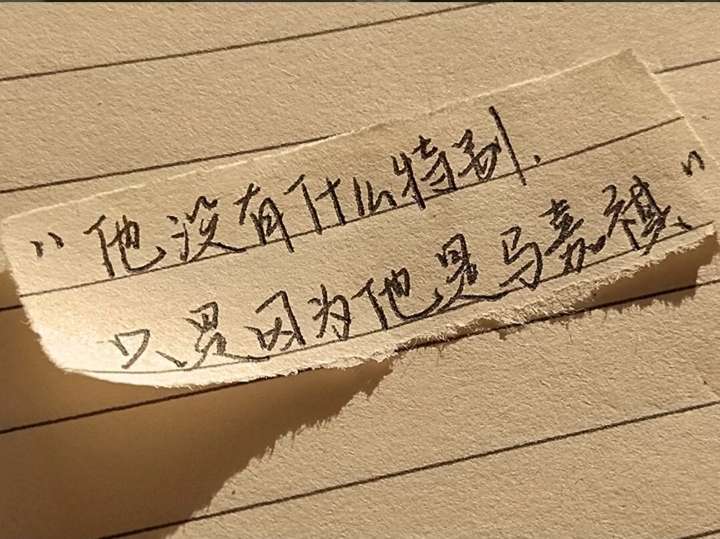 “他没有什么特别.
只是因为他是马嘉祺.”